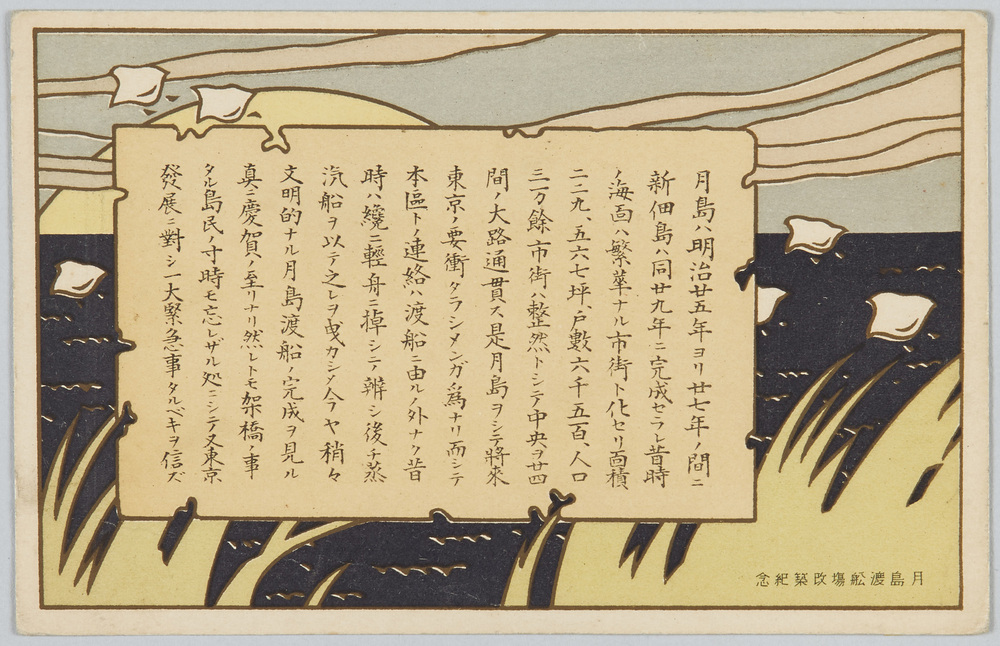 月島ハ明治廿五年ヨリ廿七年ノ間ニ
新佃島ハ同廿九年ニ完成セラレ昔時
ノ海面ハ繁華ナル市街ト化セリ面積
二二九、五六七坪、戸數六千五百、人口
三万餘市街ハ整然トシテ中央ヲ廿四
間ノ大路通貫ス是月島ヲシテ將來
東京ノ要衝タラシメンガ爲ナリ而シテ
本區トノ連絡ハ渡船ニ由ルノ外ナク昔
時ハ纔ニ輕舟ニ掉シテ辨シ後チ蒸
汽船ヲ以テ之レヲ曳カシメ今ヤ稍々
文明的ナル月島渡船ノ完成ヲ見ル
真ニ慶賀ノ至リナリ然レトモ架橋ノ事
タル島民ノ寸時モ忘レザル処ニシテ又東京
發展ニ對シ一大緊急事タルベキヲ信ズ
月島渡舩場改築紀念